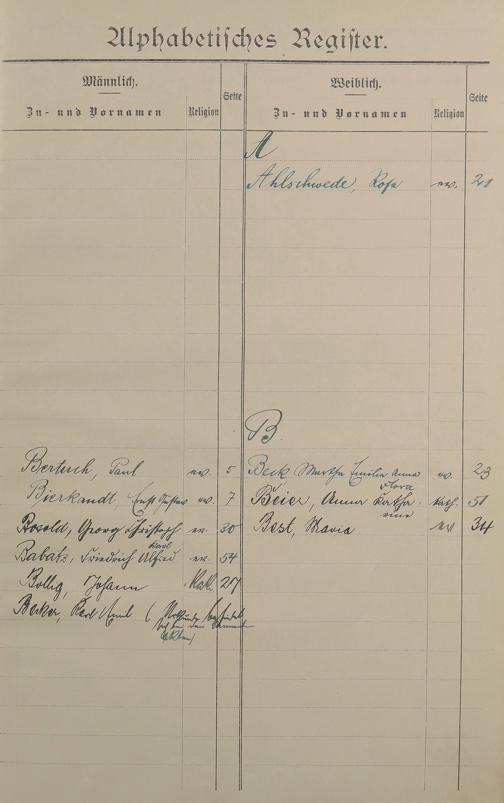 Alphabetisches Register.
Männlich.
Zu- und Vornamen Religion Seite
Weiblich.
Zu- und Vornamen Religion Seite
A
Ahlschwede, Rosa ev. 20
B
Bertsch, Paul ev. 5
Beck Martha Emilie Anna Flora ev. 23
Bierkandt, Ernst Gustav ev. 7
Beier, Anna Katharine kath. 51
Bosold, Georg Christoph ev. 30
Best, Maria ev 34
Babatz, Friedrich Karl Alfred ev. 54
Bollig, Johann Kath. 207
Becker, Karl Emil ( Urkunde befindet
sich bei den
Akten)